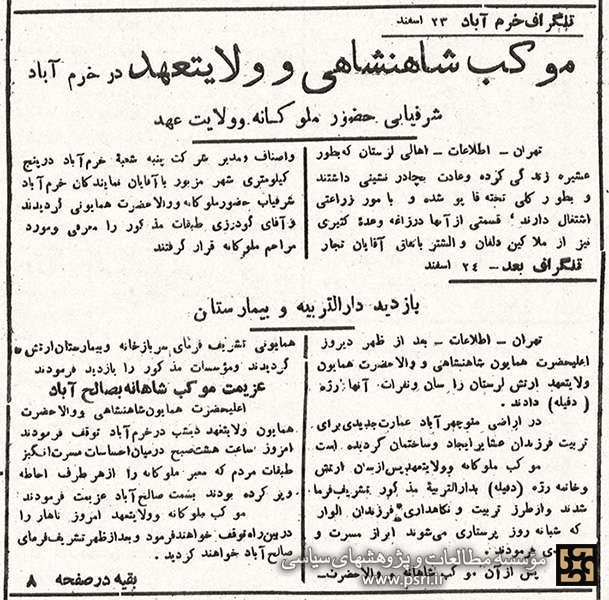 تلگراف خرم آباد ۲۳ اسفند
موکب شاهنشاهی و ولایتعهد در خرم آباد
شرفیابی حضور ملوکانه وولایت عهد
تهران - اطلاعات - اهالی لرستان که بطور
عشیره زندگی کرده وعادت بچادر نشینی داشتند
و بطور کلی تخته قاپو شده و بامور زراعتی
اشتغال دارند؛ قسمتی از آنها درزاغه وعدهٔ کثیری
نیز از ملاکین دلفان و الشتر باتفاق آقایان تجار
واصناف ومدیر شرکت پنبه شعبهٔ خرم آباد درپنج
کیلومتری شهر مزبور باآقایان نمایندگان خرم آباد
شرفیاب حضورملوکانه ووالاحضرت همایونی گردیدند
وآقای گودرزی طبقات مذکور را معرفی ومورد
مراحم ملوکانه قرار گرفتند
تلگراف بعد - ۲۴ اسفند
بازدید دارالتربیه و بیمارستان
تهران - اطلاعات - بعد از ظهر دیروز
اعلیحضرت همایون شاهنشاهی و والاحضرت همایون
ولایتعهد ارتش لرستان را سان ونفرات آنها رژه
(دفیله) دادند.
در اراضی منوچهر آباد عمارت جدیدی برای
تربیت فرزندان عشایر ایجاد وساختمان گردیده است
موکب ملوکانه وولایتعهد پس از سان ارتش
وخاتمه رژه (دفیله) بدارالتربیهٔ مذکور تشریف فرما
شدند وازطرز تربیت و نگاهداری فرزندان الوار
که شبانه روز پرستاری می شوند ابراز مسرت و
فرمودند.
پس از آن موکب شاهانه والاحضرت
همایونی تشریف فرمای سربازخانه وبیمارستان ارتش
گردیدند ومؤسسات مذکور را بازدید فرمودند
عزیمت موکب شاهانه بصالح آباد
اعلیحضرت همایون شاهنشاهی ووالاحضرت
همایون ولایتعهد دیشب درخرم آباد توقف فرمودند
امروز ساعت هشت صبح درمیان احساسات مسرت انگیز
طبقات مردم که معبر ملوکانه را ازهر طرف احاطه
کرده بودند بسمت صالح آباد عزیمت فرمودند
موکب ملوکانه وولایتعهد امروز ناهار را
دربین راه توقف خواهند فرمود وبعدازظهر تشریف فرمای
صالح آباد خواهند گردید.
بقیه در صفحه ۸
موسسه مطالعات و پژوهشهای سیاسی
www.psri.ir